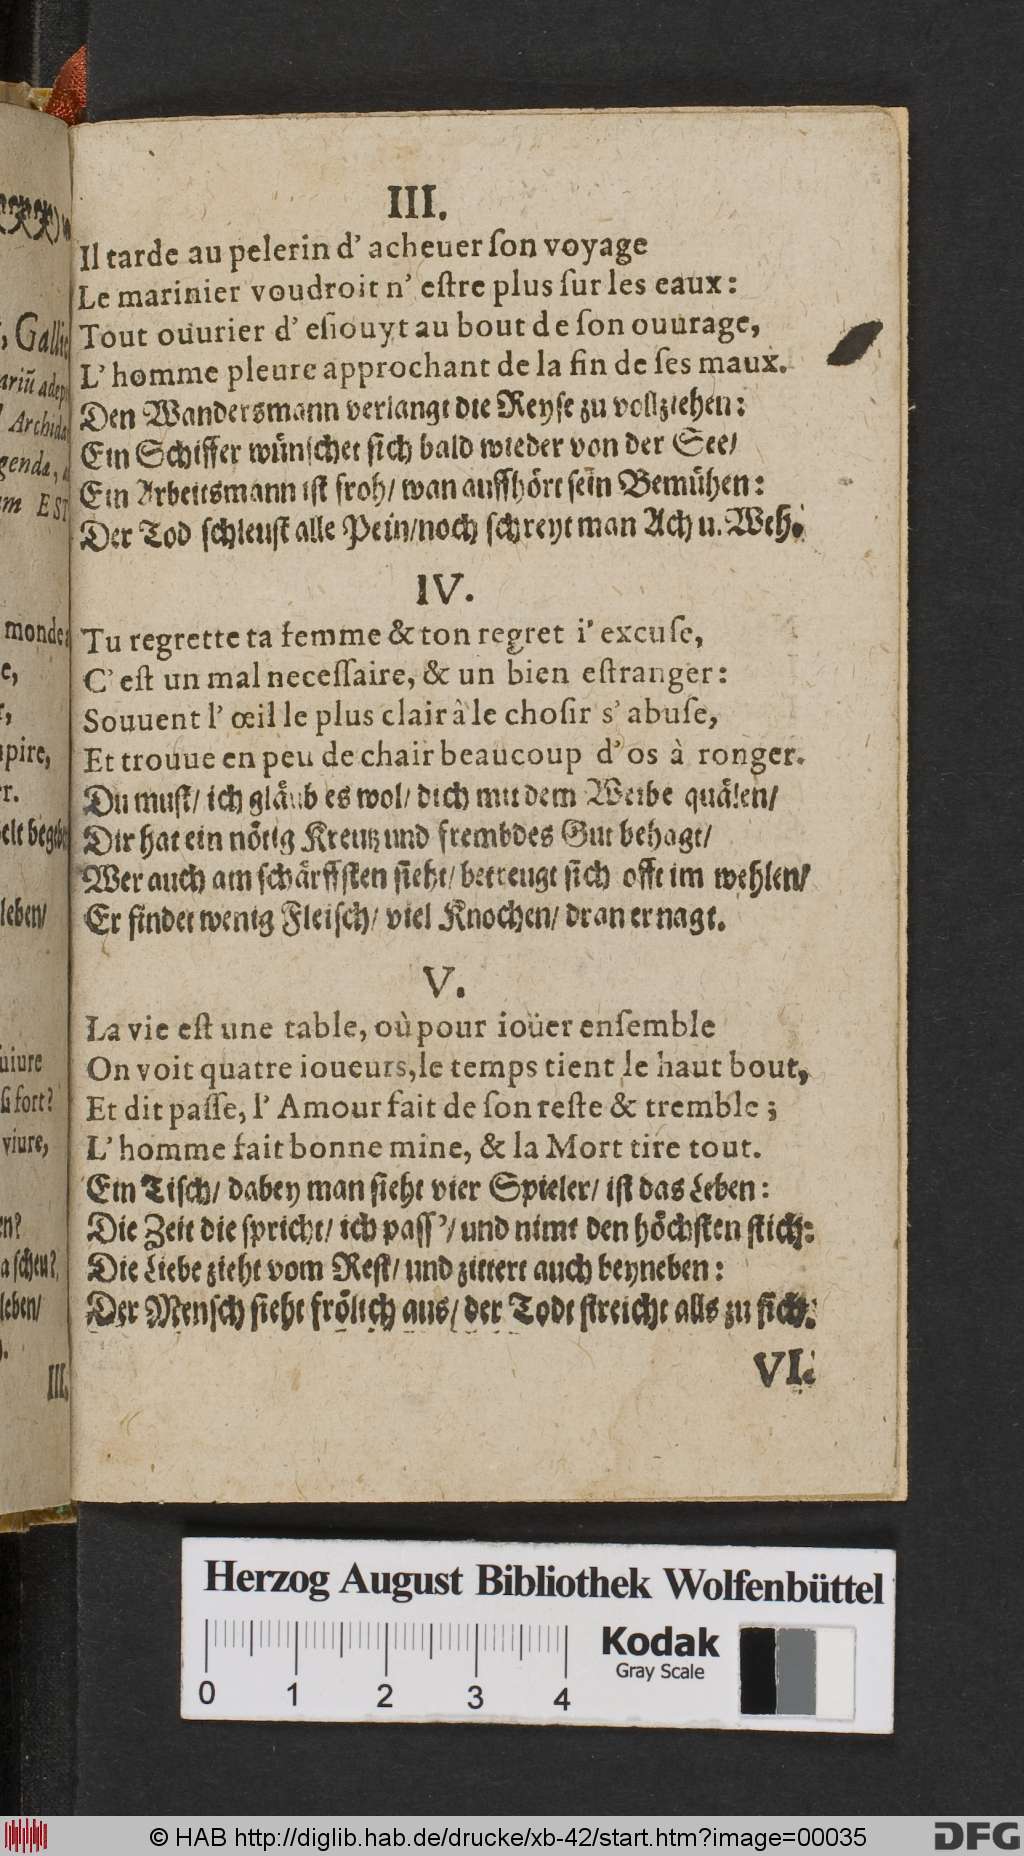 III.
Il tarde au pelerin d' acheuer ſon voyage
Le marinier voudroit n' eſtre plus ſur les eaux:
Tout ouurier d' eſiouyt au bout de ſon ouurage,
L' homme pleure approchant de la fin de ſes maux.
Den Wandersmann verlangt die Reyſe zu vollziehen:
Ein Schiffer wünſchet ſich bald wieder von der See/
Ein Arbeitsmann iſt froh/ wan auffhört ſein Bemühen:
Der Tod ſchleuſt alle Pein/noch ſchreyt man Ach u. Weh.
IV.
Tu regrette ta femme & ton regret i' excuſe,
C' eſt un mal neceſſaire, & un bien eſtranger:
Souuent l' œil le plus clair à le choſir s' abuſe,
Et trouue en peu de chair beaucoup d' os à ronger.
Du muſt/ ich gläub es wol/ dich mit dem Weibe quälen/
Dir hat ein nötig Kreutz und frembdes Gut behagt/
Wer auch am ſchärffſten ſieht/ betreugt ſich offt im wehlen/
Er findet wenig Fleiſch/ viel Knochen/ dran er nagt.
V.
La vie eſt une table, où pour ioüer enſemble
On voit quatre ioueurs, le temps tient le haut bout,
Et dit paſſe, l' Amour fait de ſon reſte & tremble;
L' homme fait bonne mine, & la Mort tire tout.
Ein Tiſch/ dabey man ſieht vier Spieler/ iſt das Leben:
Die Zeit die ſpricht/ ich paſſ'/ und nimt den höchſten ſtich:
Die Liebe zieht vom Reſt/ und zittert auch beyneben:
Der Menſch ſieht frölich aus/ der Todt ſtreicht alls zu ſich.
VI.
Gallie
Archida
genda,
EST
monde:
pire,
leben/
uiure
fort?
viure,
leben/
III.
Herzog August Bibliothek Wolfenbüttel
0 1 2 3 4
Kodak
Gray Scale
© HAB http://diglib.hab.de/drucke/xb-42/start.htm?image=00035
DFG